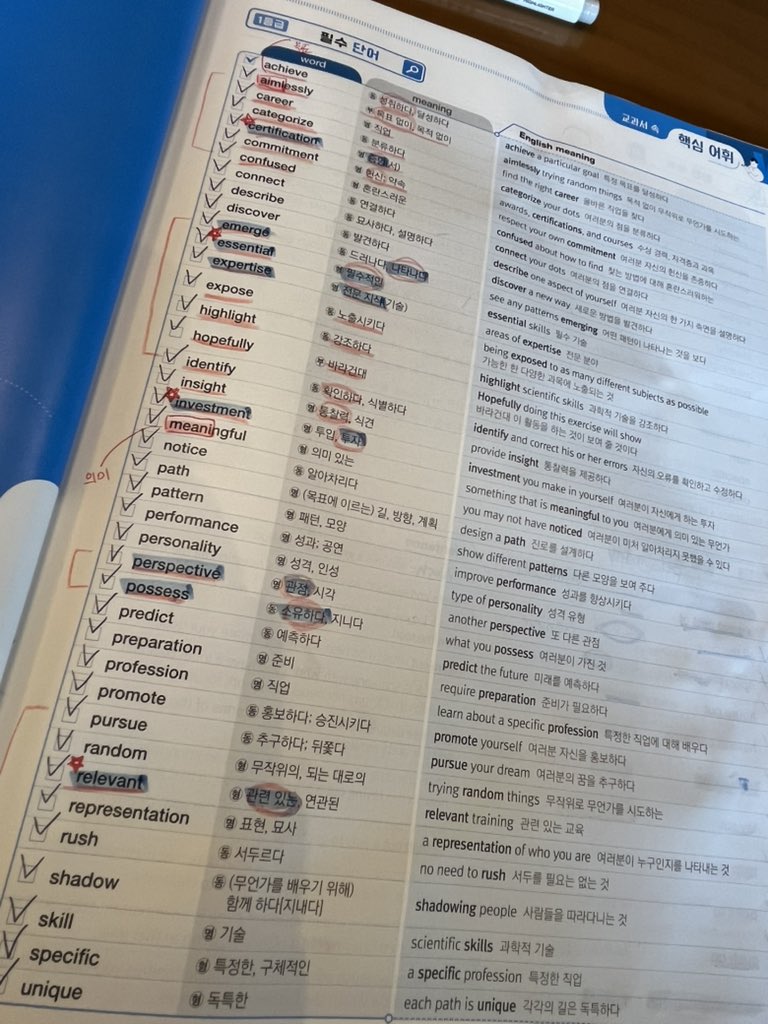 HIGHLIGHTER
1등급 필수 단어
교과서 속 핵심 어휘
word meaning English meaning
achieve 동 성취하다, 달성하다 achieve a particular goal 특정 목표를 달성하다
aimlessly 부 목표 없이, 목적 없이 aimlessly trying random things 목적 없이 무작위로 무언가를 시도하는
career 명 직업 find the right career 올바른 직업을 찾다
categorize 동 분류하다 categorize your dots 여러분의 점을 분류하다
certification 명 awards, certifications, and courses 수상 경력, 자격증과 과목
commitment 명 헌신; 약속 respect your own commitment 여러분 자신의 헌신을 존중하다
confused 형 혼란스러운 confused about how to find 찾는 방법에 대해 혼란스러워하는
connect 동 연결하다 connect your dots 여러분의 점을 연결하다
describe 동 묘사하다, 설명하다 describe one aspect of yourself 여러분 자신의 한 가지 측면을 설명하다
discover 동 발견하다 discover a new way 새로운 방법을 발견하다
emerge 동 드러나다, 나타나다 see any patterns emerging 어떤 패턴이 나타나는 것을 보다
essential 형 필수적인 essential skills 필수 기술
expertise 명 전문 지식(기술) areas of expertise 전문 분야
expose 동 노출시키다 being exposed to as many different subjects as possible
가능한 한 다양한 과목에 노출되는 것
highlight 동 강조하다 highlight scientific skills 과학적 기술을 강조하다
hopefully 부 바라건대 Hopefully doing this exercise will show
바라건대 이 활동을 하는 것이 보여 줄 것이다
identify 동 확인하다, 식별하다 identify and correct his or her errors 자신의 오류를 확인하고 수정하다
insight 명 통찰력, 식견 provide insight 통찰력을 제공하다
investment 명 투입, 투자 investment you make in yourself 여러분이 자신에게 하는 투자
meaningful 형 의미 있는 something that is meaningful to you 여러분에게 의미 있는 무언가
의미
notice 동 알아차리다 you may not have noticed 여러분이 미처 알아차리지 못했을 수 있다
path 명 (목표에 이르는) 길, 방향, 계획 design a path 진로를 설계하다
pattern 명 패턴, 모양 show different patterns 다른 모양을 보여 주다
performance 명 성과; 공연 improve performance 성과를 향상시키다
personality 명 성격, 인성 type of personality 성격 유형
perspective 명 관점, 시각 another perspective 또 다른 관점
possess 동 소유하다, 지니다 what you possess 여러분이 가진 것
predict 동 예측하다 predict the future 미래를 예측하다
preparation 명 준비 require preparation 준비가 필요하다
profession 명 직업 learn about a specific profession 특정한 직업에 대해 배우다
promote 동 홍보하다; 승진시키다 promote yourself 여러분 자신을 홍보하다
pursue 동 추구하다; 뒤쫓다 pursue your dream 여러분의 꿈을 추구하다
random 형 무작위의, 되는 대로의 trying random things 무작위로 무언가를 시도하는
relevant 형 관련 있는, 연관된 relevant training 관련 있는 교육
representation 명 표현, 묘사 a representation of who you are 여러분이 누구인지를 나타내는 것
rush 동 서두르다 no need to rush 서두를 필요는 없는 것
shadow 동 (무언가를 배우기 위해) 함께 하다[지내다] shadowing people 사람들을 따라다니는 것
skill 명 기술 scientific skills 과학적 기술
specific 형 특정한, 구체적인 a specific profession 특정한 직업
unique 형 독특한 each path is unique 각각의 길은 독특하다